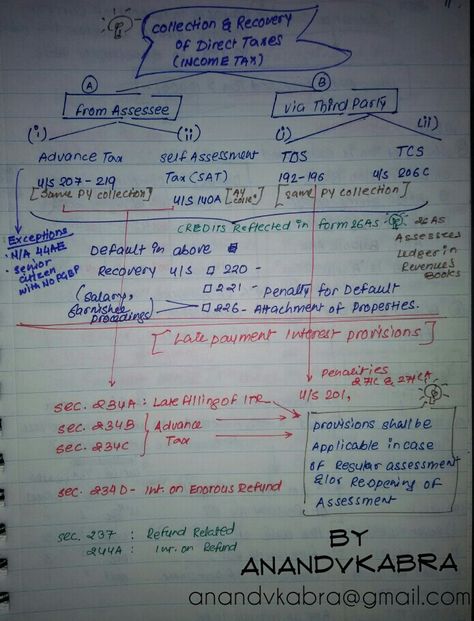 Collection & Recovery
of Direct Taxes
(INCOME TAX)
A
B
from Assessee
via Third Party
(i)
(ii)
(i)
(ii)
Advance Tax
self Assessment
TDS
TCS
u/s 207-219
Tax (SAT)
192-196
u/s 206C
[same PY collection]
u/s 140A
[same PY collection]
CREDITS Reflected in form 26AS
26AS
Assessees
Ledger in
Revenues
Books
Exceptions
• N/A 44AE
• senior
citizen
with NO PGBP
Default in above
Recovery u/s 220 -
221 - Penalty for Default
(Salary,
garnishee
proceedings)
226 - Attachment of Properties.
[Late payment Interest provisions]
Penalities
271C & 271CA
u/s 201,
sec. 234A : Late filling of ITR
sec. 234B
sec. 234C
Advance
Tax
provisions shall be
Applicable in case
of Regular assessment
&/or Reopening of
Assessment
sec. 234D - Int. on Enorous Refund
sec. 237 : Refund Related
244A : Int. on Refund
BY
ANANDVKABRA
anandvkabra@gmail.com